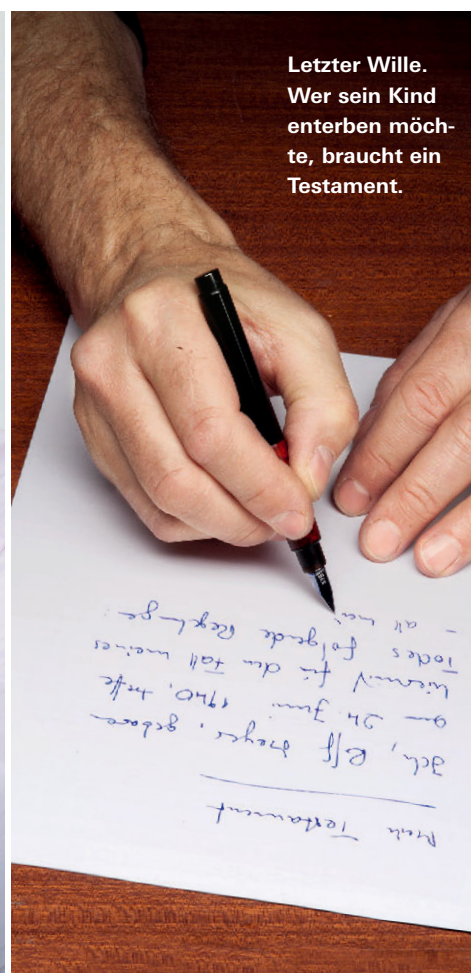 Letzter Wille.
Wer sein Kind
enterben möch-
te, braucht ein
Testament.
Mein Testament
Ich, Rolf geboren
am 24. Juni 1940, treffe
hiermit für den Fall meines
Todes folgende Regelungen:
- all mein